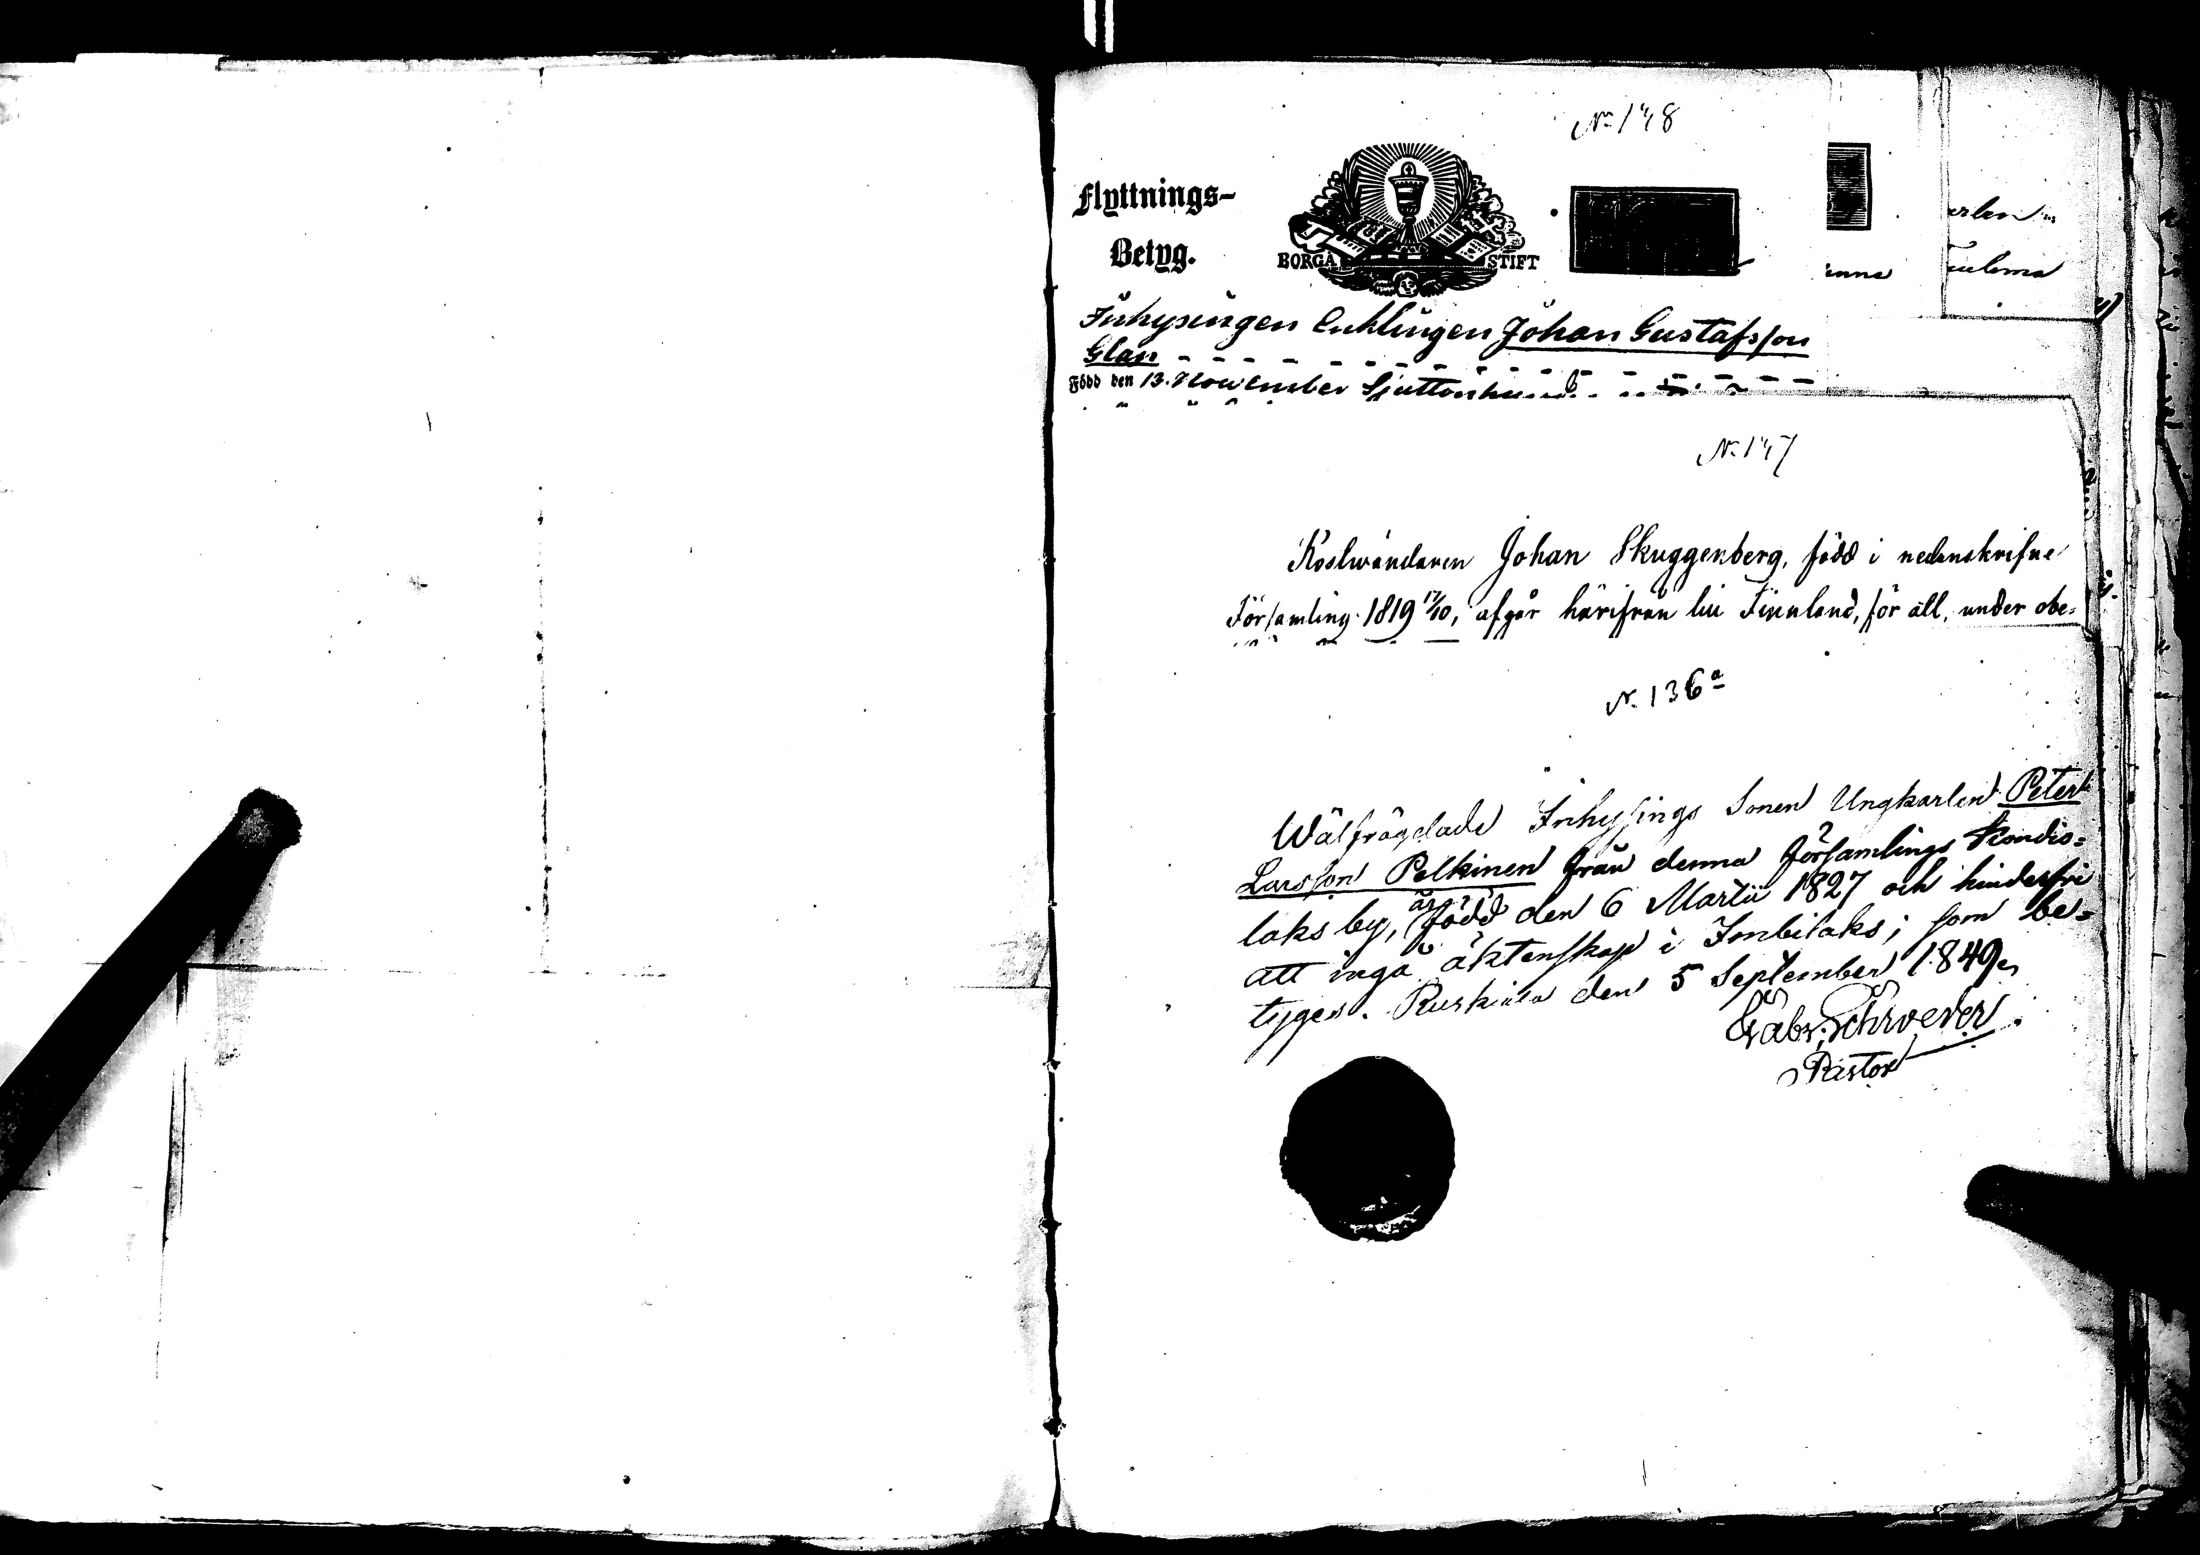 No 148
Flyttnings-
Betyg.
BORGÅ STIFT
Inhysingen Enklingen Johan Gustafsson
Glan
Född den 13. November Sjuttonhund
inna
arlen
No 147
Johan Skuggenberg, född i nedanskrifne
Församling 1819 17/10, afgår härifrån till Finnland, för att, under obe=
N. 136a
Wälfrägdade Inhysings Sonen Ungkarlen Peter
Larsson Pelkinen från denna Församlings Kondis=
laks by, är född den 6 Martii 1827 och hinderfri
att ingå äktenskap i Imbilaks; som be=
tyges. Ruskiala den 5 September 1849.
Gabr. Schroeder.
Pastor